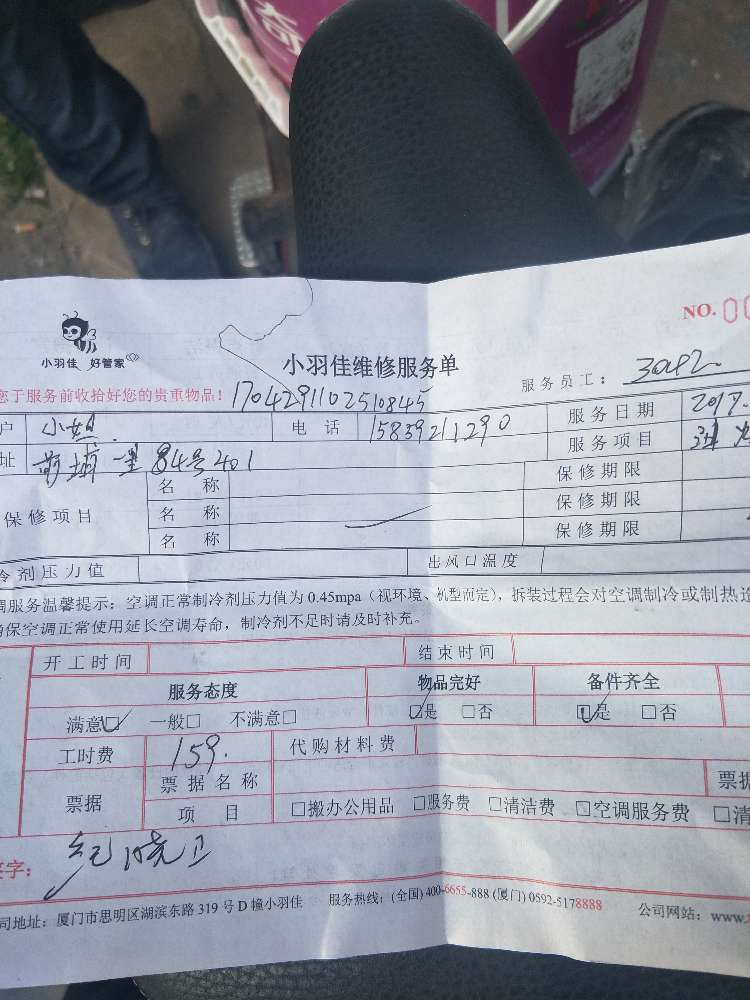 奇
NO. 0
小羽佳 好管家
小羽佳维修服务单
服务员工: 3042
您于服务前收拾好您的贵重物品! 1704291102510845
户 小姐 电 话 15839211290 服务日期 2017.
址 前埔一里84号401 服务项目
保修项目 名 称 保修期限
名 称 保修期限
名 称 保修期限
冷剂压力值 出风口温度
调服务温馨提示: 空调正常制冷剂压力值为 0.45mpa (视环境、机型而定), 拆装过程会对空调制冷或制热造
确保空调正常使用延长空调寿命, 制冷剂不足时请及时补充。
开工时间 结束时间
服务态度 物品完好 备件齐全
满意☑ 一般□ 不满意□ ☑是 □否 ☑是 □否
工时费 159. 代购材料费
票据 票据名称 票据
项 目 □搬办公用品 □服务费 □清洁费 □空调服务费 □清
签字: 纪晓卫
司地址: 厦门市思明区湖滨东路 319 号 D 幢小羽佳 服务热线: (全国) 400-6655-888 (厦门) 0592-5178888 公司网站: www.